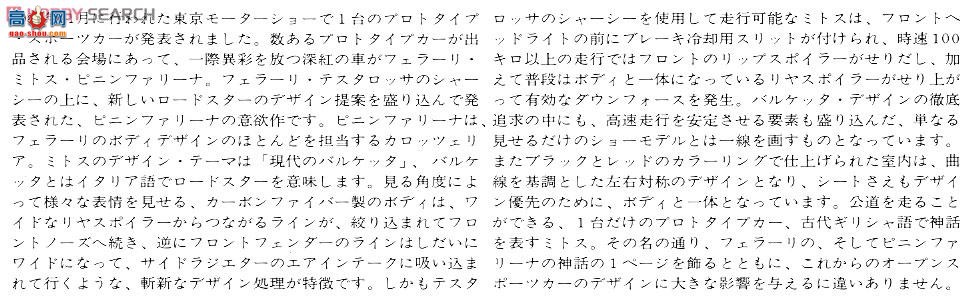 HOBBY SEARCH
gao-shou.com
月に行われた東京モーターショーで１台のプロトタイプ
スポーツカーが発表されました。数あるプロトタイプカーが出
品される会場にあって、一際異彩を放つ深紅の車がフェラーリ・
ミトス・ピニンファリーナ。フェラーリ・テスタロッサのシャー
シーの上に、新しいロードスターのデザイン提案を盛り込んで発
表された、ピニンファリーナの意欲作です。ピニンファリーナは、
フェラーリのボディデザインのほとんどを担当するカロッツェリ
ア。ミトスのデザイン・テーマは「現代のバルケッタ」、バルケ
ッタとはイタリア語でロードスターを意味します。見る角度によ
って様々な表情を見せる、カーボンファイバー製のボディは、ワ
イドなリヤスポイラーからつながるラインが、絞り込まれてフロ
ントノーズへ続き、逆にフロントフェンダーのラインはしだいに
ワイドになって、サイドラジエターのエアインテークに吸い込ま
れて行くような、斬新なデザイン処理が特徴です。しかもテスタ
ロッサのシャーシーを使用して走行可能なミトスは、フロントヘ
ッドライトの前にブレーキ冷却用スリットが付けられ、時速100
キロ以上の走行ではフロントのリップスポイラーがせりだし、加
えて普段はボディと一体になっているリヤスポイラーがせり上が
って有効なダウンフォースを発生。バルケッタ・デザインの徹底
追求の中にも、高速走行を安定させる要素も盛り込んだ、単なる
見せるだけのショーモデルとは一線を画すものとなっています。
またブラックとレッドのカラーリングで仕上げられた室内は、曲
線を基調とした左右対称のデザインとなり、シートさえもデザイ
ン優先のために、ボディと一体となっています。公道を走ること
ができる、１台だけのプロトタイプカー、古代ギリシャ語で神話
を表すミトス。その名の通り、フェラーリの、そしてピニンファ
リーナの神話の１ページを飾るとともに、これからのオープンス
ポーツカーのデザインに大きな影響を与えるに違いありません。